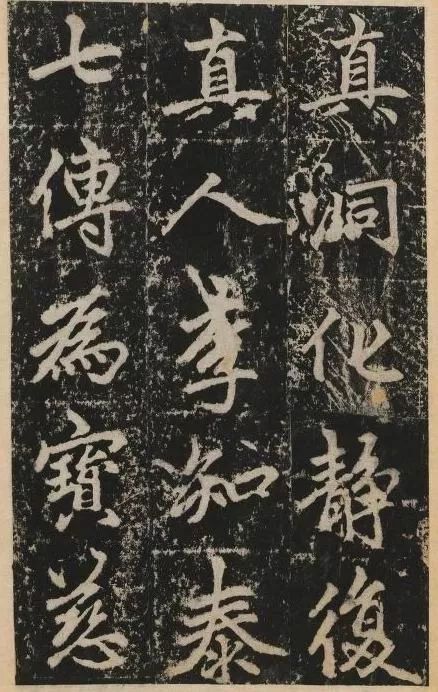 真嗣化靜復
真人李知泰
七傳為寶慈